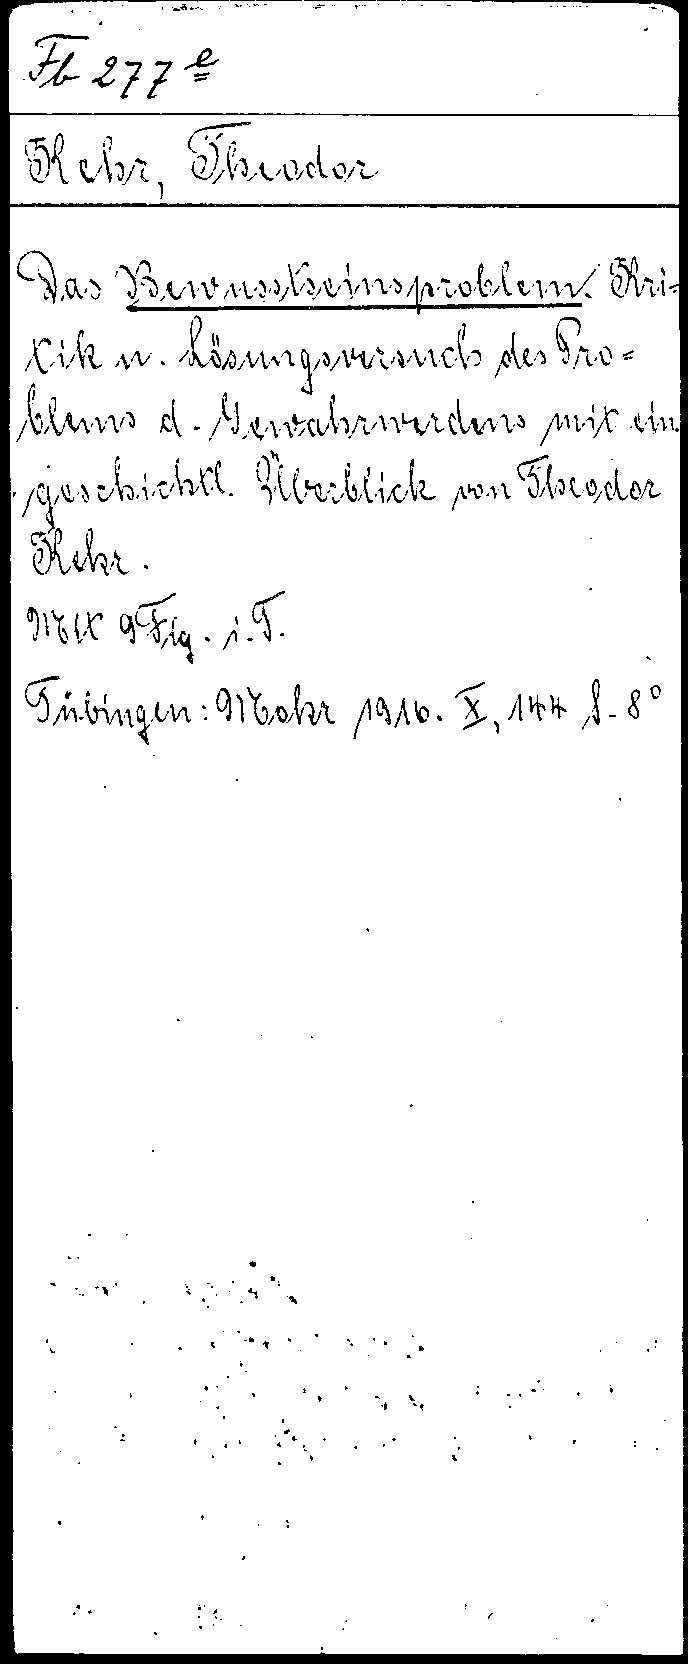 Fb 277 e
Kehr, Theodor
Das Bewusstseinsproblem. Kri=
tik u. Lösungsversuch des Pro=
blems d. Gewahrwerdens mit ein.
geschichtl. Überblick von Theodor
Kehr.
Mit 9 Fig. i. T.
Tübingen: Mohr 1916. X, 144 S. 8°